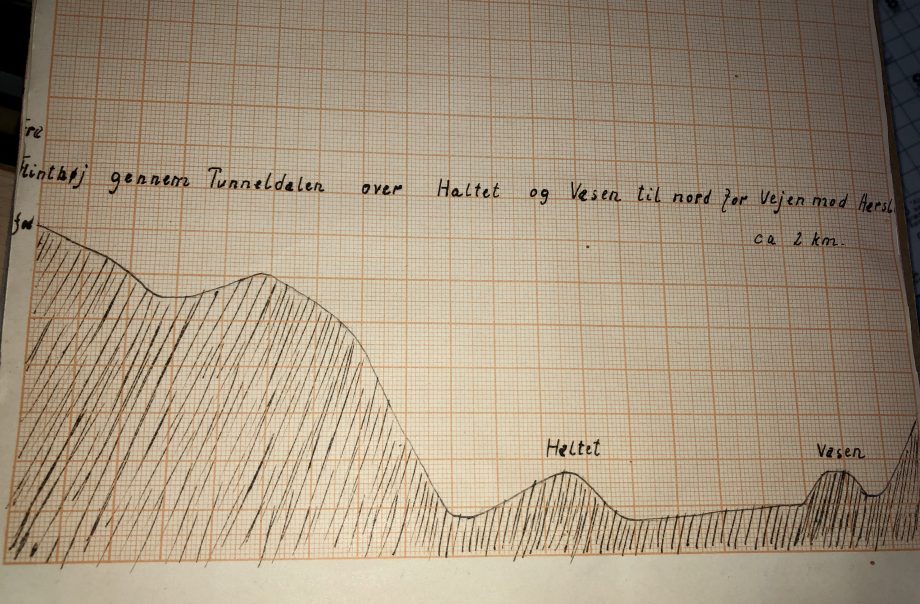 Fra
Flinthøj gennem Tunneldalen over Haltet og Vasen til nord for Vejen mod
ca 2 km.
fod
Haltet Vasen